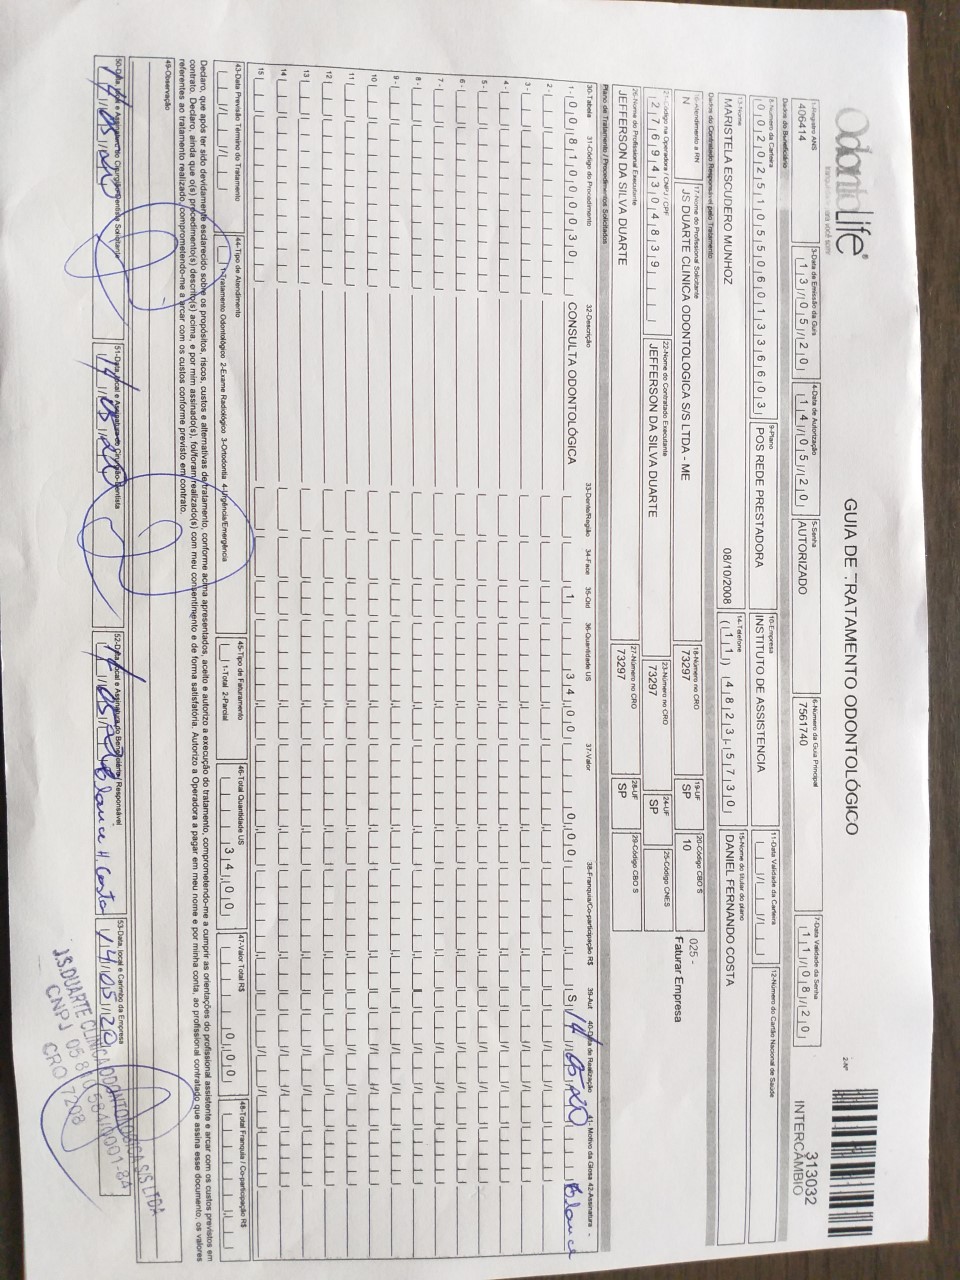 OdontoLife®
GUIA DE TRATAMENTO ODONTOLÓGICO
2-Nº
313032
INTERCÂMBIO
1-Registro ANS
406414
3-Data de Emissão da Guia
13/05/20
4-Data de Autorização
14/05/20
5-Senha
AUTORIZADO
6-Número da Guia Principal
7561740
7-Data Validade da Senha
11/08/20
Dados do Beneficiário
8-Número da Carteira
00202510550601336603
9-Plano
POS REDE PRESTADORA
10-Empresa
INSTITUTO DE ASSISTENCIA
11-Data Validade da Carteira
12-Número do Cartão Nacional de Saúde
13-Nome
MARISTELA ESCUDERO MUNHOZ
08/10/2008
14-Telefone
(11) 4823-5730
15-Nome do titular do plano
DANIEL FERNANDO COSTA
Dados do Contratado Responsável pelo Tratamento
16-Atendimento a RN
N
17-Nome do Profissional Solicitante
JS DUARTE CLINICA ODONTOLOGICA S/S LTDA - ME
18-Número no CRO
73297
19-UF
SP
20-Código CBO S
10
025 -
Faturar Empresa
21-Código na Operadora / CNPJ / CPF
27694304839
22-Nome do Contratado Executante
JEFFERSON DA SILVA DUARTE
23-Número no CRO
73297
24-UF
SP
25-Código CNES
26-Nome do Profissional Executante
JEFFERSON DA SILVA DUARTE
27-Número no CRO
73297
28-UF
SP
29-Código CBO S
Plano de Tratamento / Procedimentos Solicitados
30-Tabela 31-Código do Procedimento 32-Descrição 33-Dente/Região 34-Face 35-Qtd 36-Quantidade US 37-Valor 38-Franquia/Co-participação R$ 39-Aut 40-Data de Realização 41-Motivo da Glosa 42-Assinatura
1- 00 81000030 CONSULTA ODONTOLÓGICA 1 34,00 0,00 S 14/05/20
2-
3-
4-
5-
6-
7-
8-
9-
10
11
12
13
14
15
43-Data Previsão Término do Tratamento
44-Tipo de Atendimento
1-Tratamento Odontológico 2-Exame Radiológico 3-Ortodontia 4-Urgência/Emergência
45-Tipo de Faturamento
1-Total 2-Parcial
46-Total Quantidade US
34,00
47-Valor Total R$
0,00
48-Total Franquia / Co-participação R$
Declaro, que após ter sido devidamente esclarecido sobre os propósitos, riscos, custos e alternativas de tratamento, conforme acima apresentados, aceito e autorizo a execução do tratamento, comprometendo-me a cumprir as orientações do profissional assistente e arcar com os custos previstos em
contrato. Declaro, ainda que o(s) procedimento(s) descrito(s) acima, e por mim assinado(s), foi/foram realizado(s) com meu consentimento e de forma satisfatória. Autorizo a Operadora a pagar em meu nome e por minha conta, ao profissional contratado que assina esse documento, os valores
referentes ao tratamento realizado, comprometendo-me a arcar com os custos conforme previsto em contrato.
49-Observação
50-Data, local e Assinatura do Cirurgião-Dentista Solicitante
14/05/20
51-Data, local e Assinatura do Cirurgião-Dentista
14/05/20
52-Data, local e Assinatura do Beneficiário/Responsável
14/05/20
53-Data, local e Carimbo da Empresa
14/05/20
J.S.DUARTE CLÍNICA ODONTOLÓGICA S/S LTDA